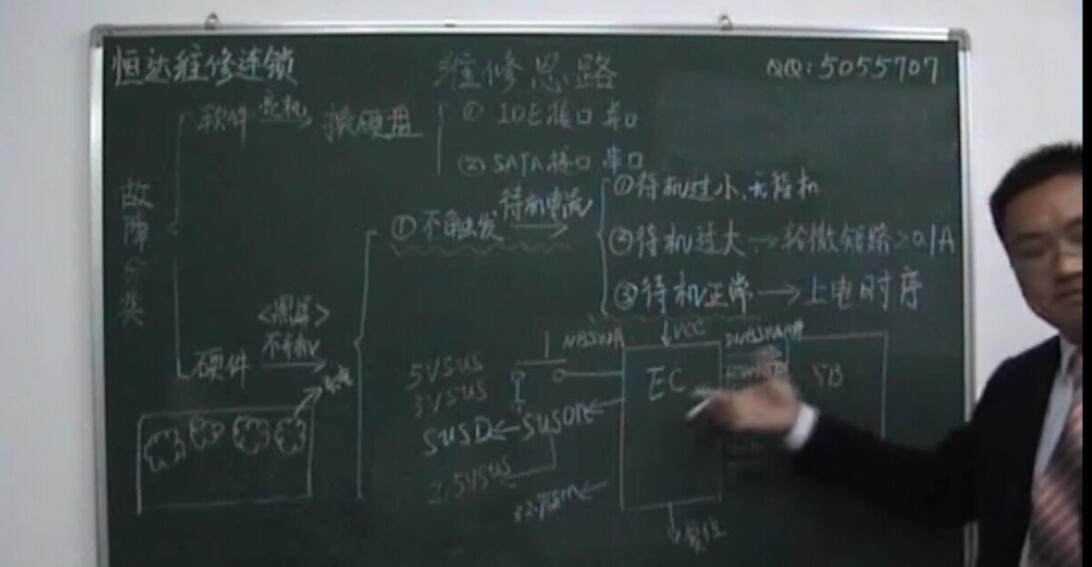 恒达维修连锁
维修思路
QQ:5055707
故障分类
软件 亮机 换硬盘
① IDE接口 并口
② SATA接口 串口
硬件 <黑屏>
① 不触发 待机电流
① 待机过小、无待机
② 待机过大 → 轻微短路 >0.1A
③ 待机正常 → 上电时序
5VSUS
3VSUS
SUSD ← SUSON ←
2.5VSUS
NBSWN#
VCC
EC
DNBSWON#
SB
复位